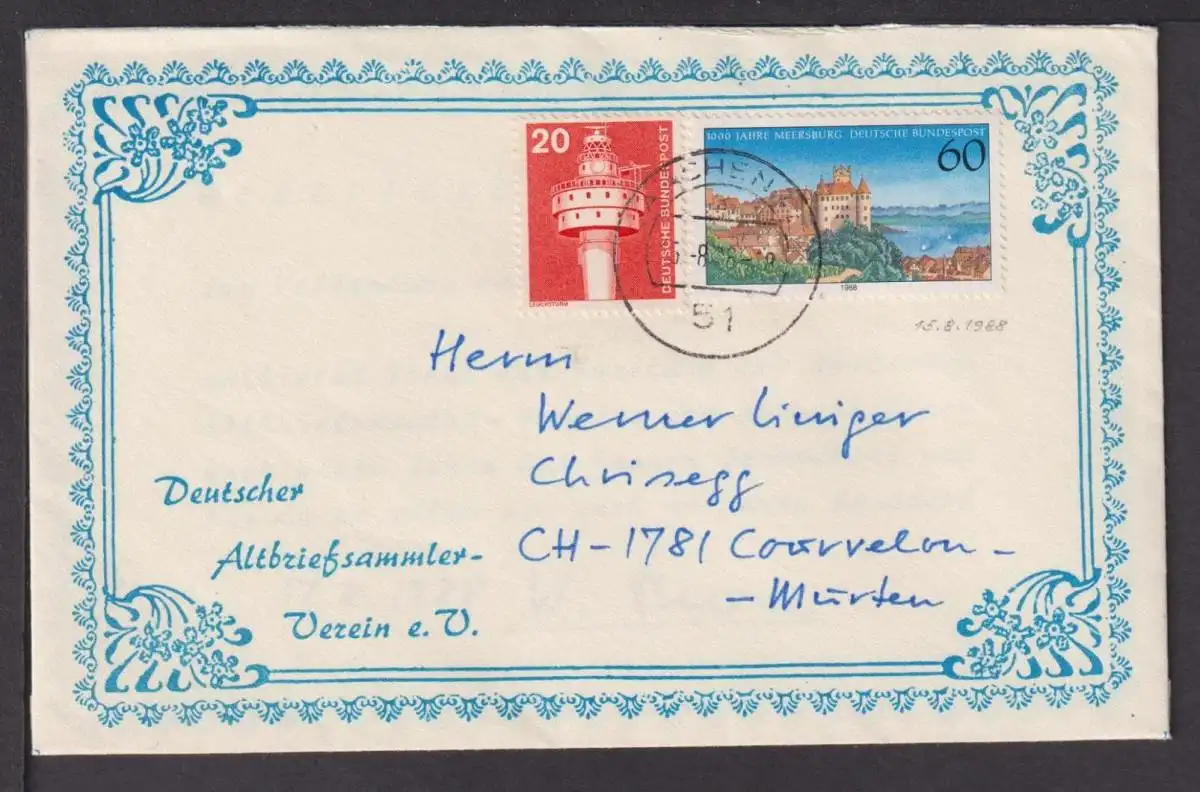 20
DEUTSCHE BUNDESPOST
LEUCHTTURM
1000 JAHRE MEERSBURG DEUTSCHE BUNDESPOST
60
1988
AACHEN
51
15.8.1988
Herrn
Werner Liniger
Chrisegg
CH-1781 Courrelon-
-Murten
Deutscher
Altbriefsammler-
Verein e.V.